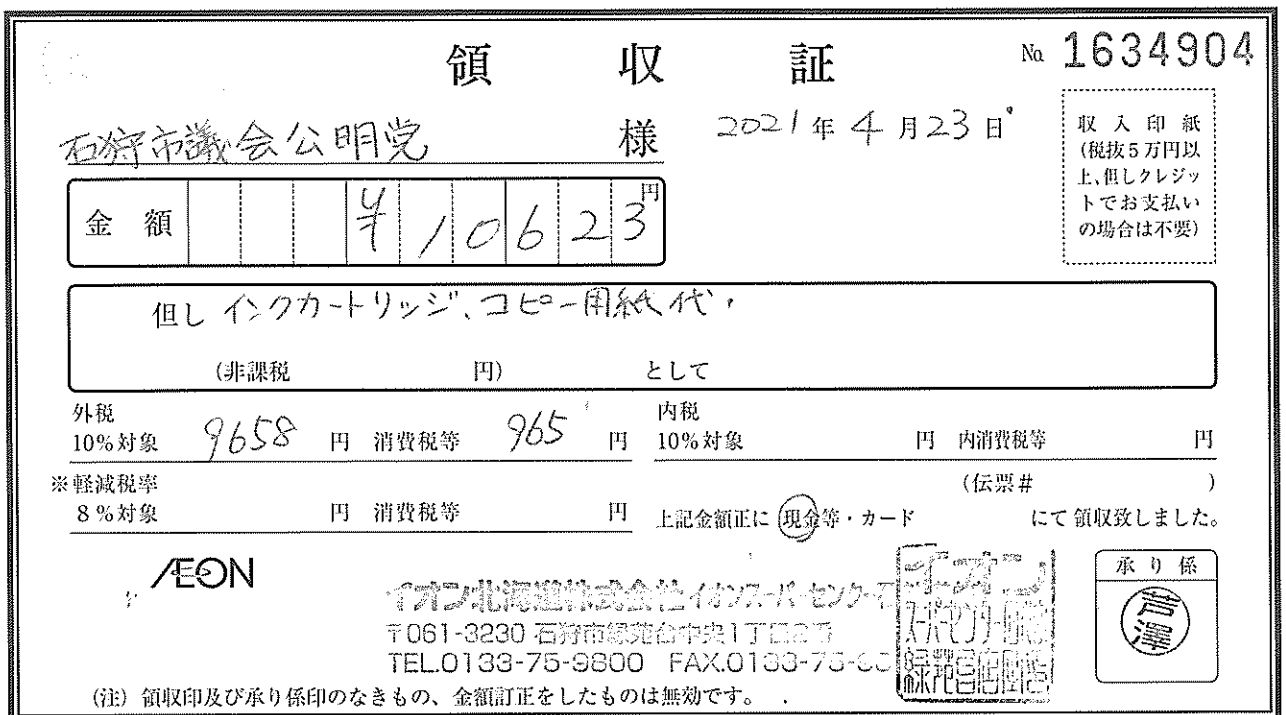 領収証
No. 1634904
石狩市議会公明党 様
2021年4月23日
収入印紙
(税抜5万円以
上、但しクレジッ
トでお支払い
の場合は不要)
金額 ¥10623円
但し インクカートリッジ、コピー用紙代
(非課税 円) として
外税
10%対象 9658 円 消費税等 965 円
内税
10%対象 円 内消費税等 円
※軽減税率
8%対象 円 消費税等 円
(伝票# )
上記金額正に 現金等・カード にて領収致しました。
ÆON
イオン北海道株式会社 イオンスーパーセンター石
〒061-3230 石狩市緑苑台中央1丁目2番
TEL.0133-75-9800 FAX.0133-75-
イオン
スーパーセンター石狩
緑苑台店
承り係
芦澤
(注) 領収印及び承り係印のなきもの、金額訂正をしたものは無効です。